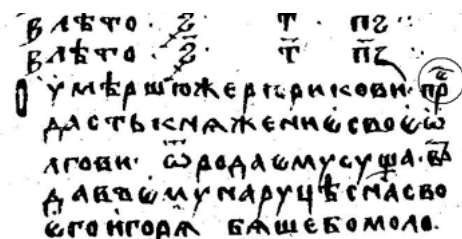 В лѣто · ҂ѕ҃ · т҃ · пз ·:
В лѣто · ҂ѕ҃ · т҃ · п҃з ·:
Оумѣршюже рюрикови · прⷣе
дасть кнѧжение свое ѡ
лгови · ѿ рода ему суща · въ
давъ ему на руцѣ сна сво
его игорѧ бѧше бо моло ·